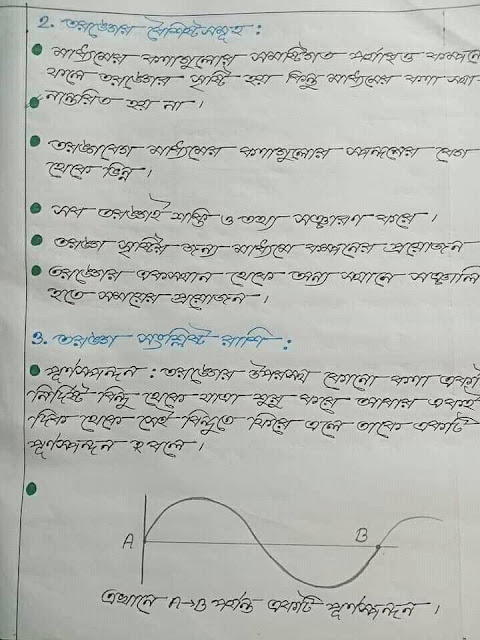 2. তরঙ্গের বৈশিষ্ট্যসমূহ :
মাধ্যমের কণাগুলোর সমষ্টিগত পর্যাবৃত্ত কম্পনে
ফলে তরঙ্গের সৃষ্টি হয় কিন্তু মাধ্যমের কণা স্থা
নান্তরিত হয় না ।
তরঙ্গবেগ মাধ্যমের কণাগুলোর স্পন্দনের বেগ
থেকে ভিন্ন ।
সব তরঙ্গই শক্তি ও তথ্য সঞ্চারণ করে ।
তরঙ্গ সৃষ্টির জন্য মাধ্যমে কম্পনের প্রয়োজন
তরঙ্গের একস্থান থেকে অন্য স্থানে সঞ্চালি
হতে সময়ের প্রয়োজন ।
3. তরঙ্গ সংশ্লিষ্ট রাশি :
পূর্ণস্পন্দন : তরঙ্গের উপরস্থ কোনো কণা একটা
নির্দিষ্ট বিন্দু থেকে যাত্রা শুরু করে আবার একই
দিক থেকে সেই বিন্দুতে ফিরে এলে তাকে একটি
পূর্ণস্পন্দন বলে ।
A B
এখানে A→B পর্যন্ত একটি পূর্ণস্পন্দন ।